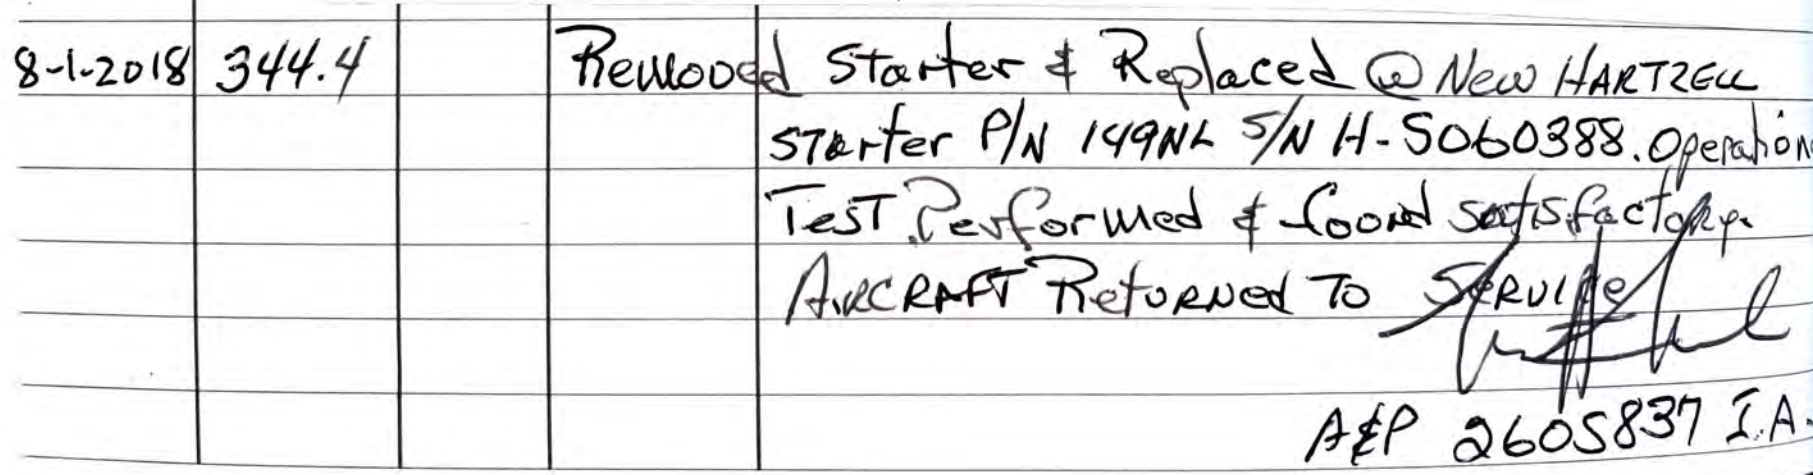 8-1-2018 344.4 Removed Starter & Replaced @ New HARTZELL
Starter P/N 149NL S/N H-5060388. Operation
Test Performed & found satisfactory.
AIRCRAFT Returned To SERVICE
A&P 2605837 I.A.